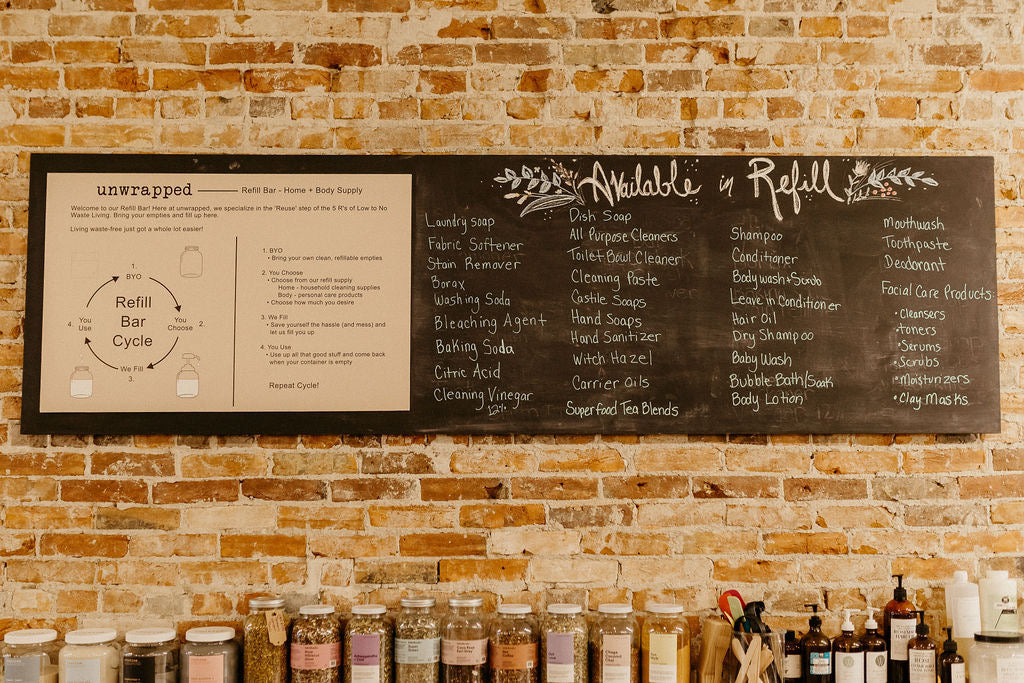 unwrapped
Refill Bar - Home + Body Supply
Welcome to our Refill Bar! Here at unwrapped, we specialize in the 'Reuse' step of the 5 R's of Low to No
Waste Living. Bring your empties and fill up here.
Living waste-free just got a whole lot easier!
1.
BYO
Refill
Bar
Cycle
You
Choose
2.
We Fill
3.
4.
You
Use
1. BYO
• Bring your own clean, refillable empties
2. You Choose
• Choose from our refill supply
Home - household cleaning supplies
Body - personal care products
• Choose how much you desire
3. We Fill
• Save yourself the hassle (and mess) and
let us fill you up
4. You Use
• Use up all that good stuff and come back
when your container is empty
Repeat Cycle!
Available in Refill
Laundry soap
Fabric Softener
Stain Remover
Borax
Washing Soda
Bleaching Agent
Baking Soda
Citric Acid
Cleaning Vinegar
12%
Dish Soap
All Purpose Cleaners
Toilet Bowl Cleaner
Cleaning Paste
Castile Soaps
Hand Soaps
Hand Sanitizer
Witch Hazel
Carrier Oils
Superfood Tea Blends
Shampoo
Conditioner
Bodywash + Scrub
Leave in Conditioner
Hair Oil
Dry Shampoo
Baby Wash
Bubble Bath/Soak
Body Lotion
Mouthwash
Toothpaste
Deodorant
Facial Care Products:
• Cleansers
• toners
• Serums
• Scrubs
• Moisturizers
• Clay Masks